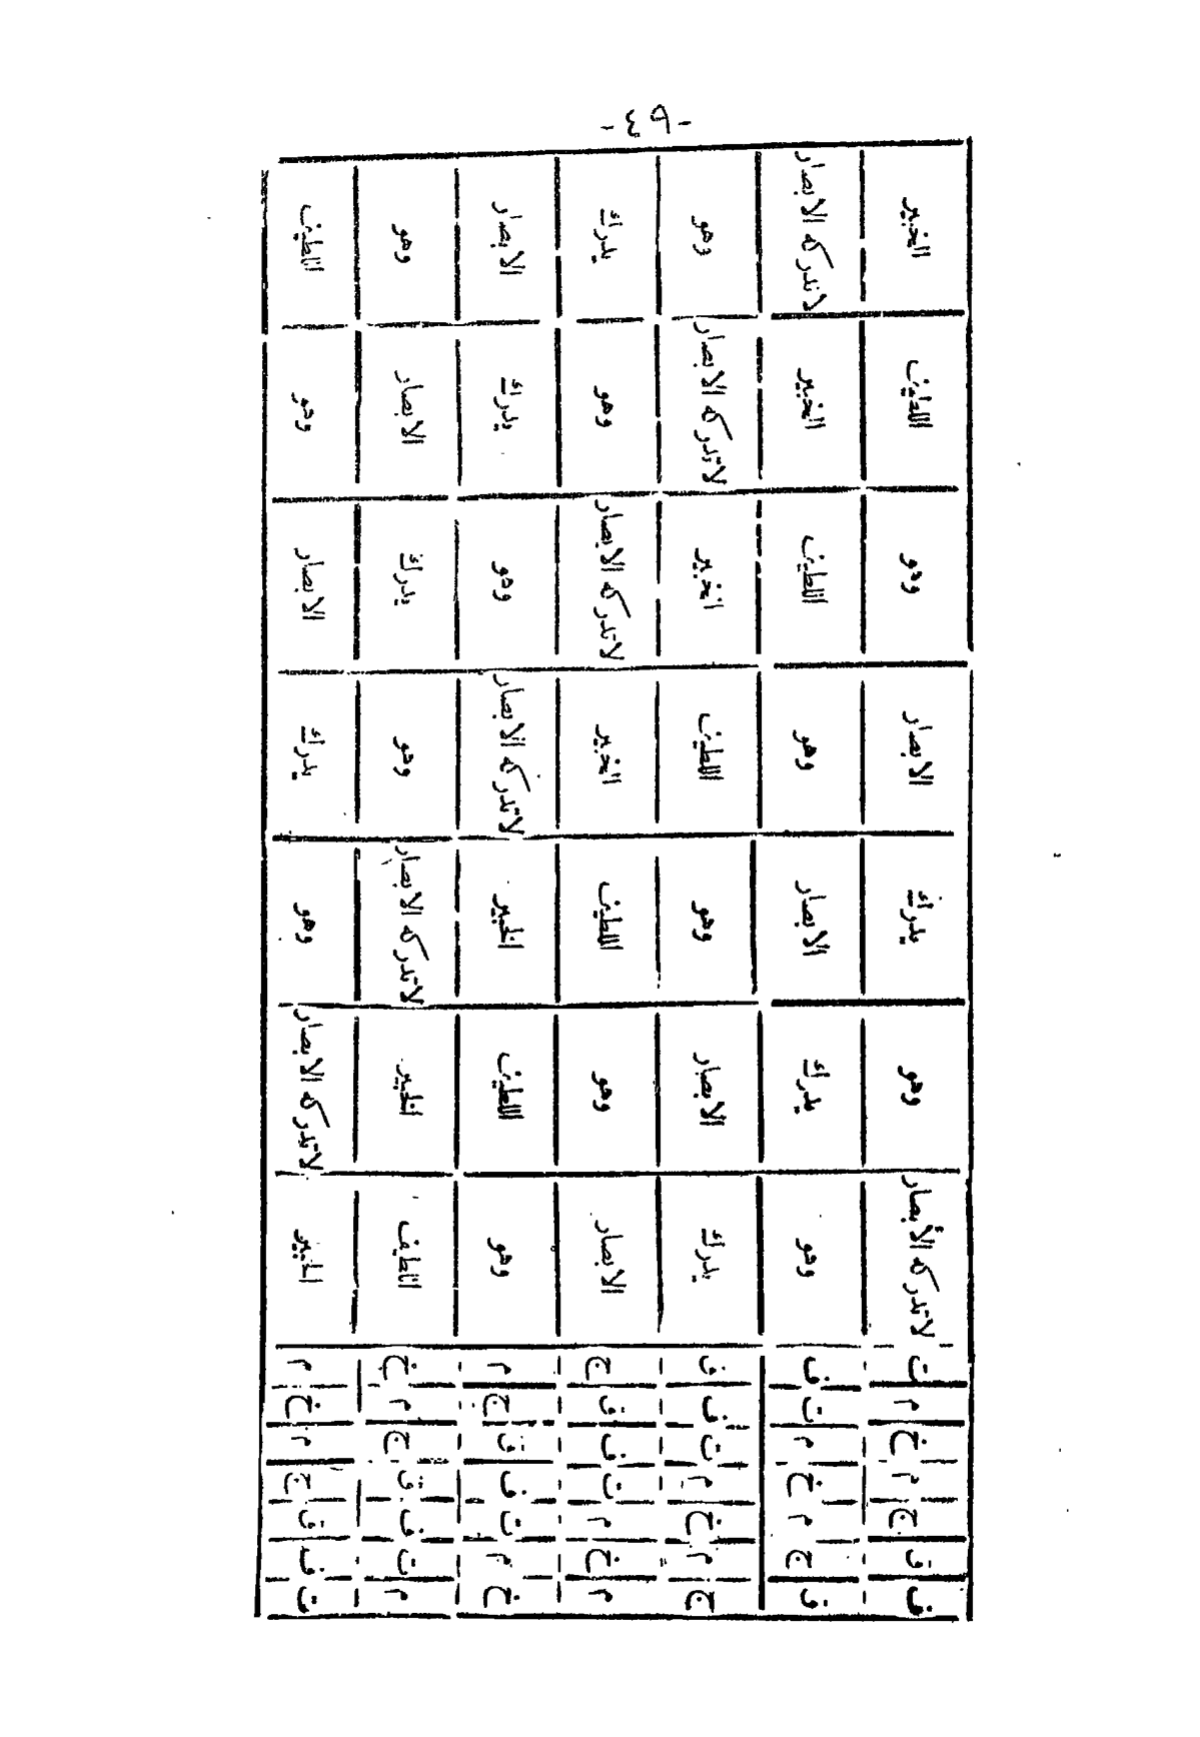 -٤٩-
ف ق ج م خ م ت لاتدركه الأبصار وهو يدرك الابصار وهو اللطيف الخبير
ق ج م خ م ت ف وهو يدرك الابصار وهو اللطيف الخبير لاتدركه الابصار
ج م خ م ت ف ق يدرك الابصار وهو اللطيف الخبير لاتدركه الابصار وهو
م خ م ت ف ق ج الابصار وهو اللطيف الخبير لاتدركه الابصار وهو يدرك
خ م ت ف ق ج م وهو اللطيف الخبير لاتدركه الابصار وهو يدرك الابصار
م ت ف ق ج م خ اللطيف الخبير لاتدركه الابصار وهو يدرك الابصار وهو
ت ف ق ج م خ م الخبير لاتدركه الابصار وهو يدرك الابصار وهو اللطيف